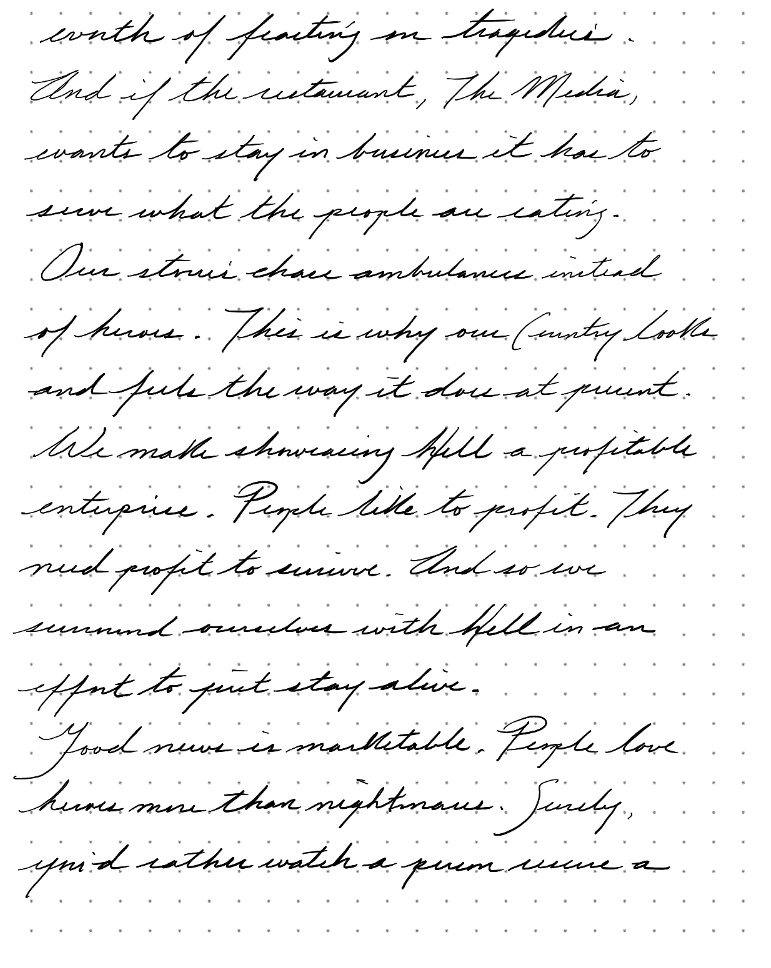 worth of feasting on tragedies.
And if the restaurant, The Media,
wants to stay in business it has to
serve what the people are eating.
Our stories chase ambulances instead
of heroes. This is why our Country looks
and feels the way it does at present.
We make showcasing Hell a profitable
enterprise. People like to profit. They
need profit to survive. And so we
surround ourselves with Hell in an
effort to just stay alive.
Good news is marketable. People love
heroes more than nightmares. Surely,
you'd rather watch a person rescue a